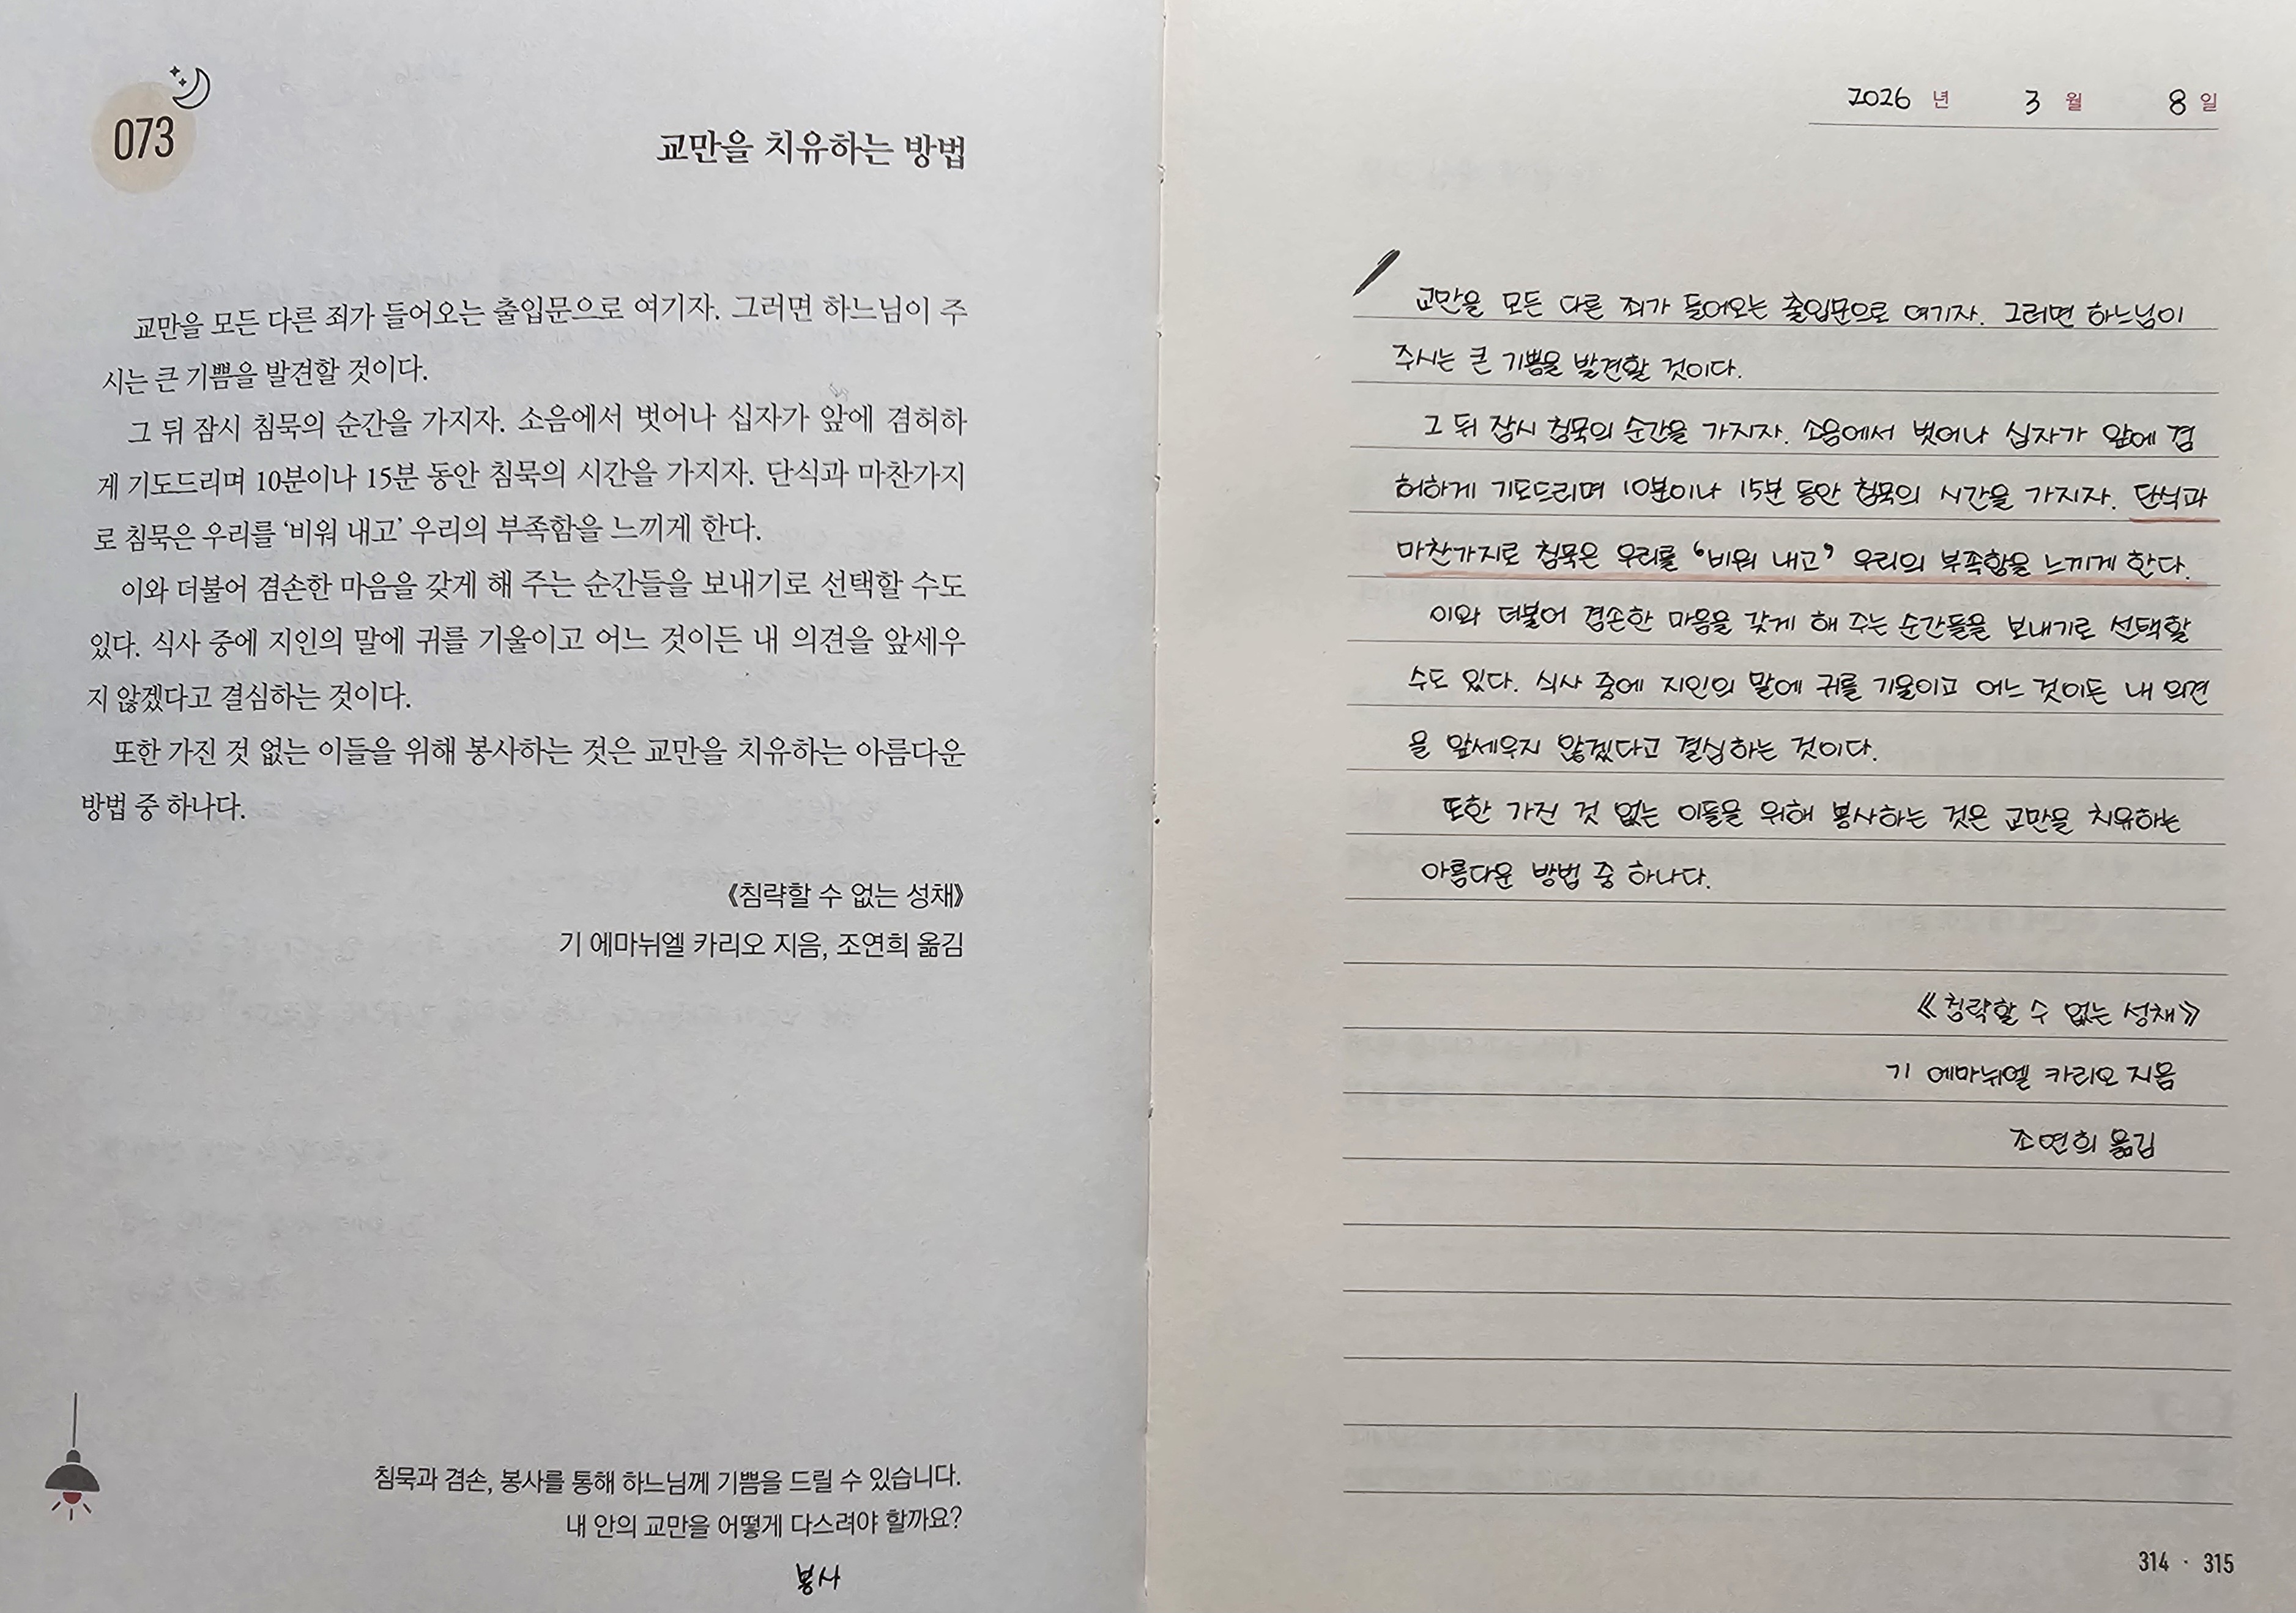 073
교만을 치유하는 방법
교만을 모든 다른 죄가 들어오는 출입문으로 여기자. 그러면 하느님이 주
시는 큰 기쁨을 발견할 것이다.
그 뒤 잠시 침묵의 순간을 가지자. 소음에서 벗어나 십자가 앞에 겸허하
게 기도드리며 10분이나 15분 동안 침묵의 시간을 가지자. 단식과 마찬가지
로 침묵은 우리를 ‘비워 내고’ 우리의 부족함을 느끼게 한다.
이와 더불어 겸손한 마음을 갖게 해 주는 순간들을 보내기로 선택할 수도
있다. 식사 중에 지인의 말에 귀를 기울이고 어느 것이든 내 의견을 앞세우
지 않겠다고 결심하는 것이다.
또한 가진 것 없는 이들을 위해 봉사하는 것은 교만을 치유하는 아름다운
방법 중 하나다.
《침략할 수 없는 성채》
기 에마뉘엘 카리오 지음, 조연희 옮김
침묵과 겸손, 봉사를 통해 하느님께 기쁨을 드릴 수 있습니다.
내 안의 교만을 어떻게 다스려야 할까요?
봉사
2026 년 3 월 8 일
교만을 모든 다른 죄가 들어오는 출입문으로 여기자. 그러면 하느님이
주시는 큰 기쁨을 발견할 것이다.
그 뒤 잠시 침묵의 순간을 가지자. 소음에서 벗어나 십자가 앞에 겸
허하게 기도드리며 10분이나 15분 동안 침묵의 시간을 가지자. 단식과
마찬가지로 침묵은 우리를 ‘비워 내고’ 우리의 부족함을 느끼게 한다.
이와 더불어 겸손한 마음을 갖게 해 주는 순간들을 보내기로 선택할
수도 있다. 식사 중에 지인의 말에 귀를 기울이고 어느 것이든 내 의견
을 앞세우지 않겠다고 결심하는 것이다.
또한 가진 것 없는 이들을 위해 봉사하는 것은 교만을 치유하는
아름다운 방법 중 하나다.
《침략할 수 없는 성채》
기 에마뉘엘 카리오 지음
조연희 옮김
314 · 315